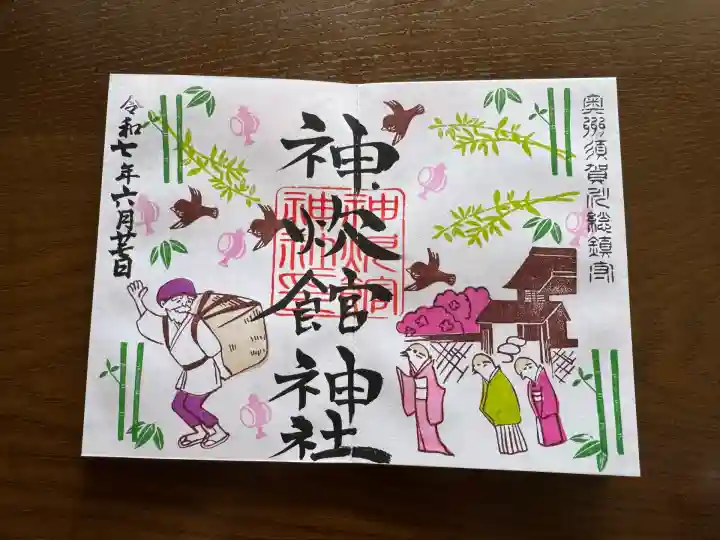 奥州須賀川総鎮守
神炊館神社
令和七年六月廿二日